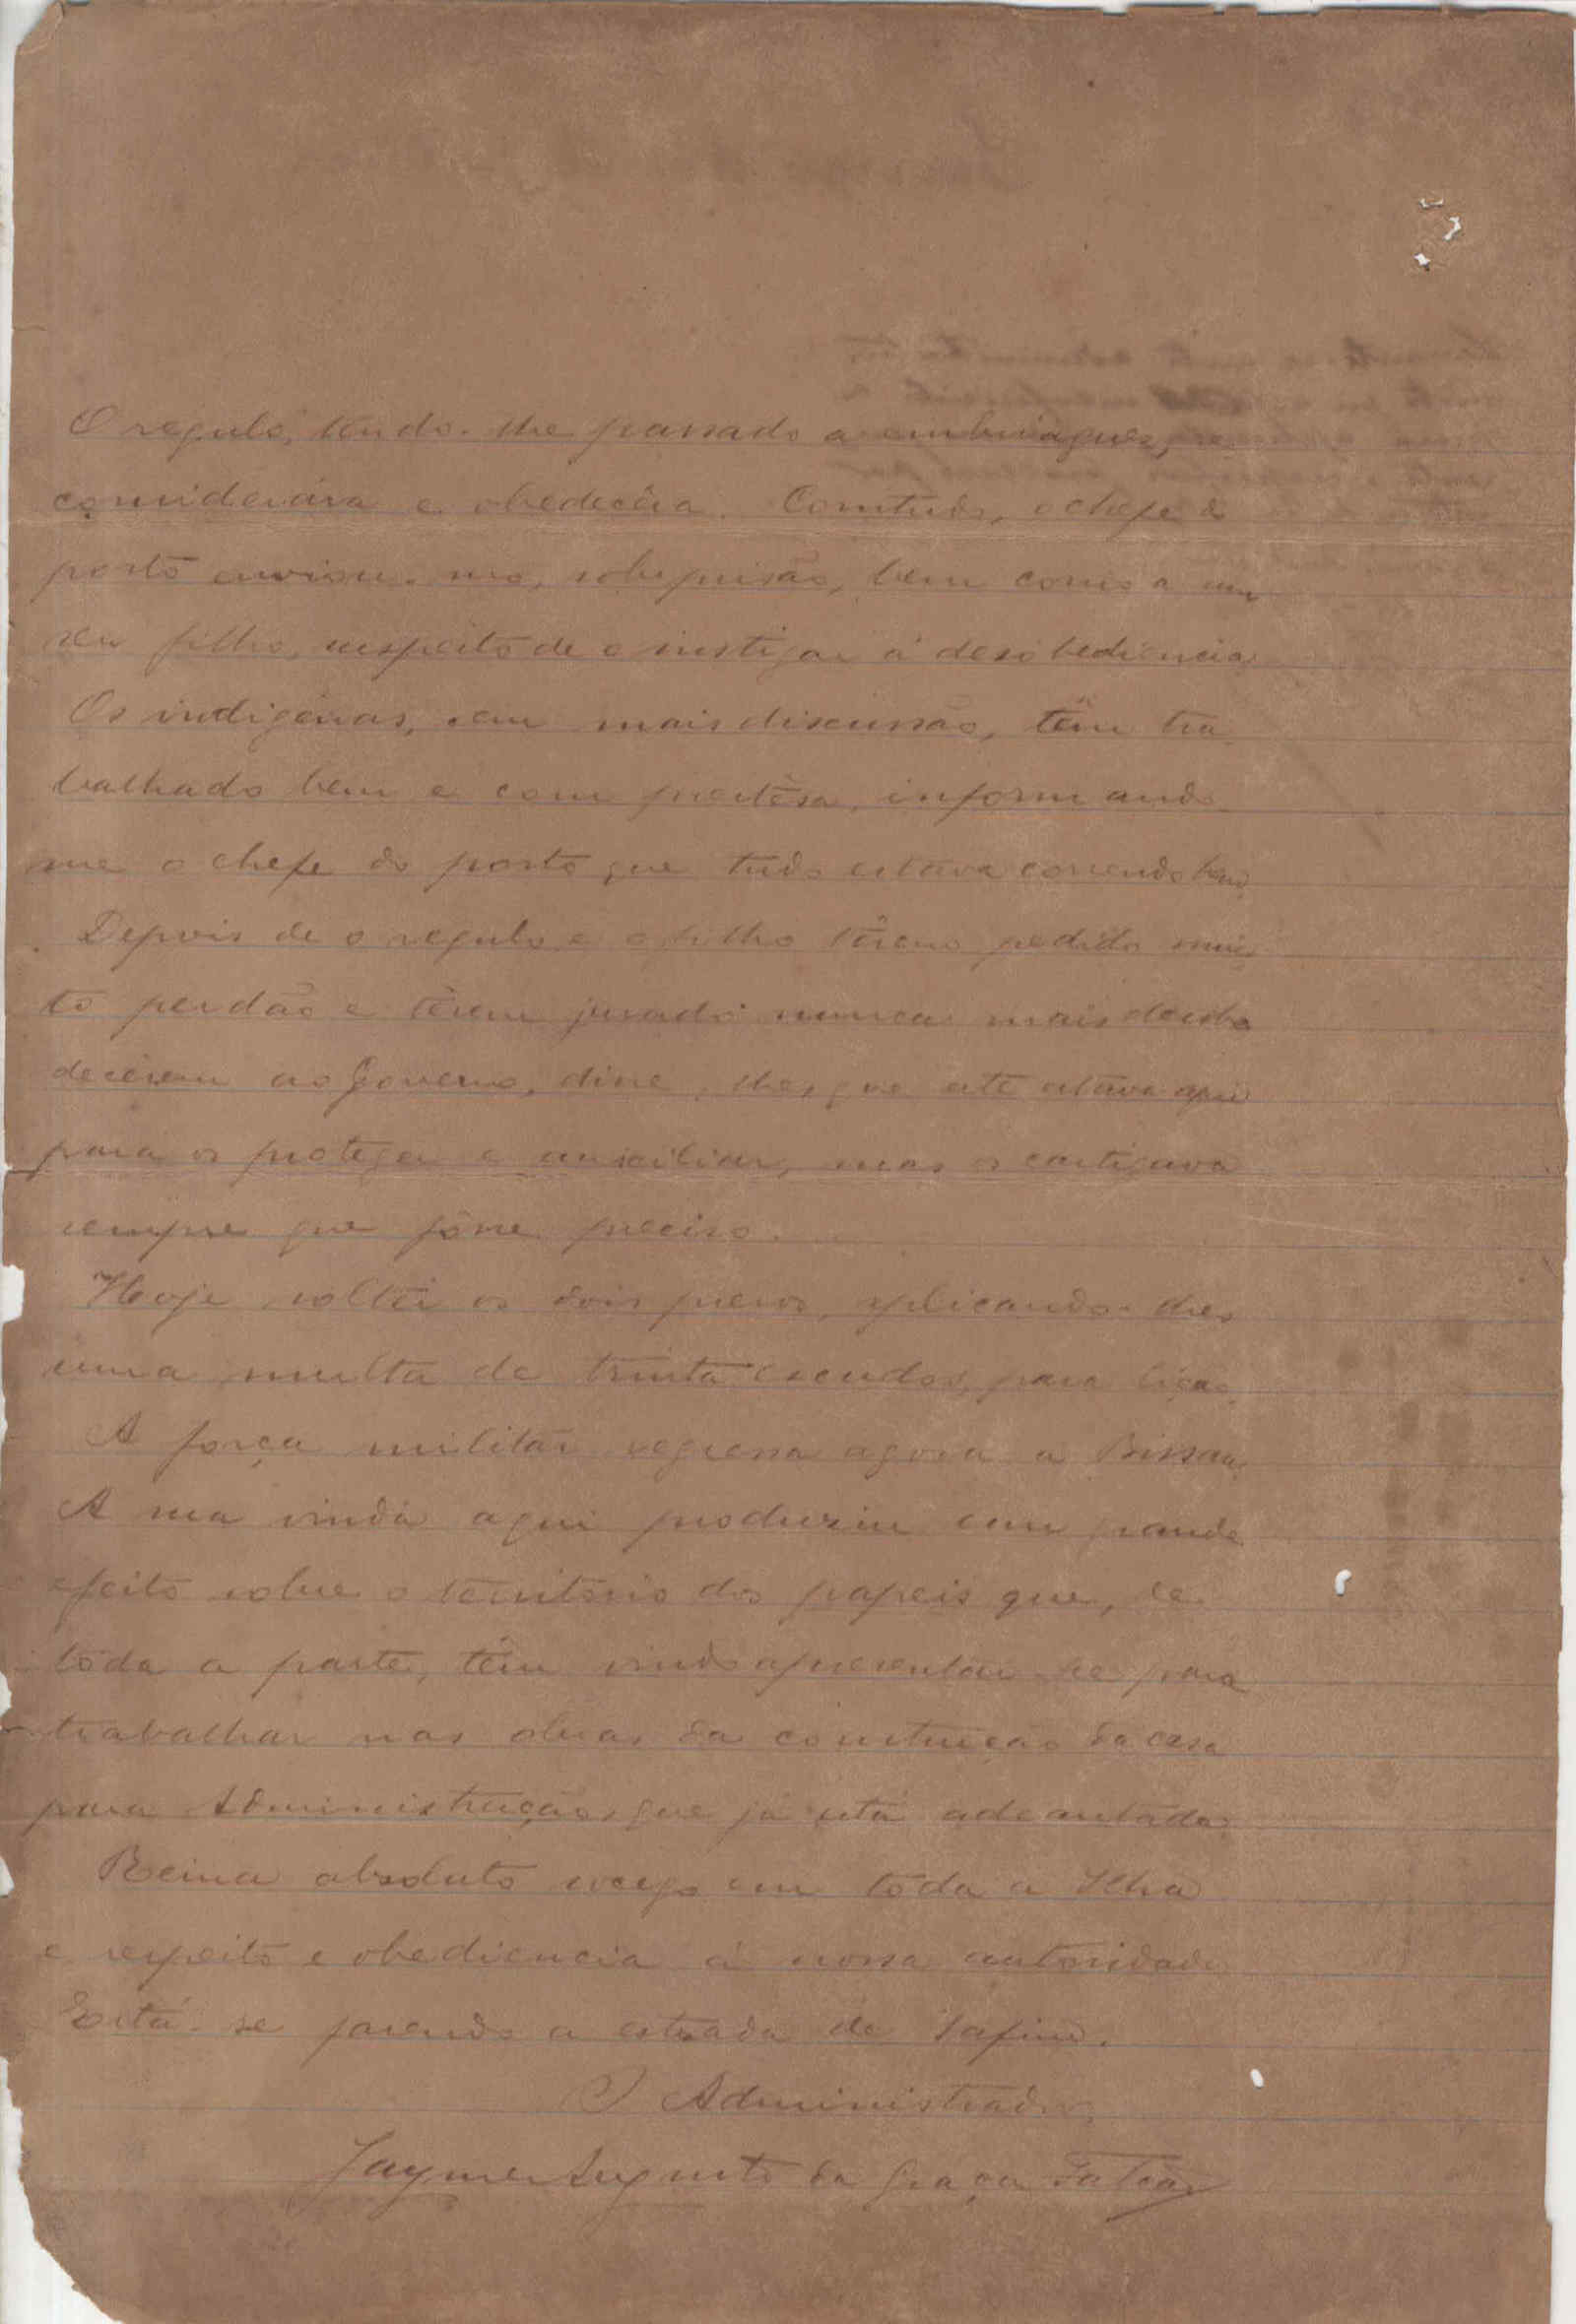 O regulo, tendo-lhe passado a embriaguez,
considerára e obedecêra. Comtudo, o chefe do
posto enviou-mo, sob prisão, bem como a um
seu filho, suspeito de o instigar á desobediencia.
Os indigenas, sem mais discussão, têm tra-
balhado bem e com prestêsa, informando-
me o chefe do posto que tudo estava correndo bem.
Depois de o regulo e o filho têrem pedido mui-
to perdão e têrem jurado nunca mais desobe-
decerem ao Governo, disse-lhes que até estava aqui
para os proteger e auxiliar, mas os castigava
sempre que fôsse preciso.
Hoje soltei os dois presos, aplicando-lhes
uma multa de trinta escudos, para lição.
A força militar regressa agora a Bissau.
A sua vinda aqui produziu um grande
efeito sobre o território dos papeis que, de
tôda a parte, têm vindo apresentar-se para
trabalhar nas obras da construção da casa
para Administração, que já está adeantada.
Reina absoluto socego em tôda a Ilha
e respeito e obediencia á nossa autoridade
Está-se fazendo a estrada de Safim.
O Administrador,
Jayme Augusto da Graça Falcão